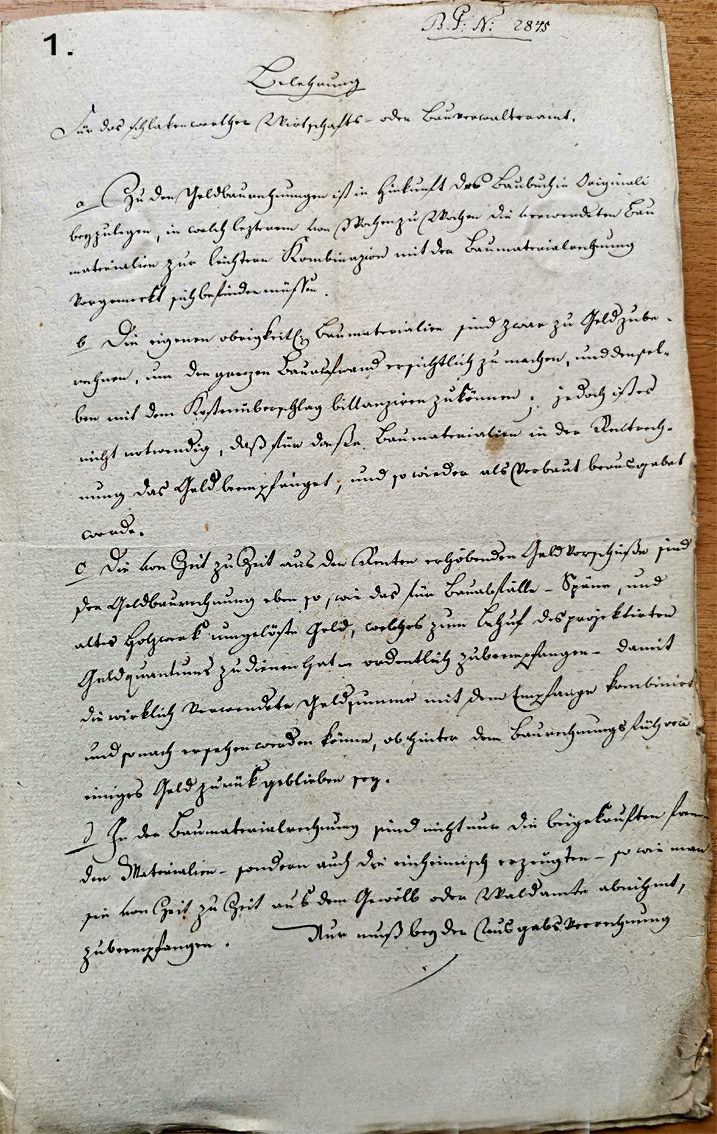 1.
B. P. N: 2875
Belehrung
Für das Schlakenwerther Wirtschafts- oder Bauverwalteramt.
a Zu den Geldbaurechnungen ist in Hinkunft das Baubuch in Originali
beyzulegen, in welch lezterem von Wochen zu Wochen die verwendeten Bau
materialien zur leichtern Kombinazion mit der Baumaterialrechnung
vorgemerkt sich befinden müssen.
b Die eigenen obrigkeitl. Baumaterialien sind zwar zu Geld zube-
rechnen, um den ganzen Bauaufwand ersichtlich zu machen, und densel-
ben mit dem Kostenüberschlag billanziren zu können; jedoch ist es
nicht notwendig, daß für diese Baumaterialien in der Rentrech-
nung das Geld beempfänget, und so wieder als Verbaut berausgabet
werde.
c Die von Zeit zu Zeit aus den Renten erhobenden Geld Vorschüße sind
der Geldbaurechnung eben so, wie das für Bauabfälle - Späne, und
altes Holzwerk eingelöste Geld, welches zum Behuf des projektirten
Geldquantums zu dienen hat - ordentlich zubeempfangen - damit
die wirklich verwendete Geldsumme mit dem Empfange kombinirt
und sonach ersehen werden könne, ob hinter dem Baurechnungsführer
einiges Geld zurük geblieben sey.
d In der Baumaterialrechnung sind nicht nur die beigekauften frem-
den Materialien - sondern auch die einheimisch erzeugten - so wie man
sie von Zeit zu Zeit aus dem Gewölb oder Waldamte abnihmt,
zubeempfangen. Nur muß bey der Ausgabsverrechnung